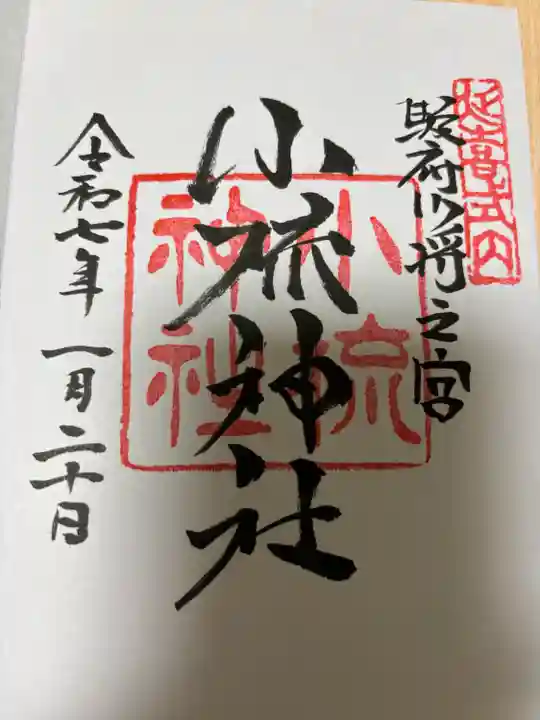 延喜式内
駿府少将之宮
小梳神社
小梳神社
令和七年 一月二十日